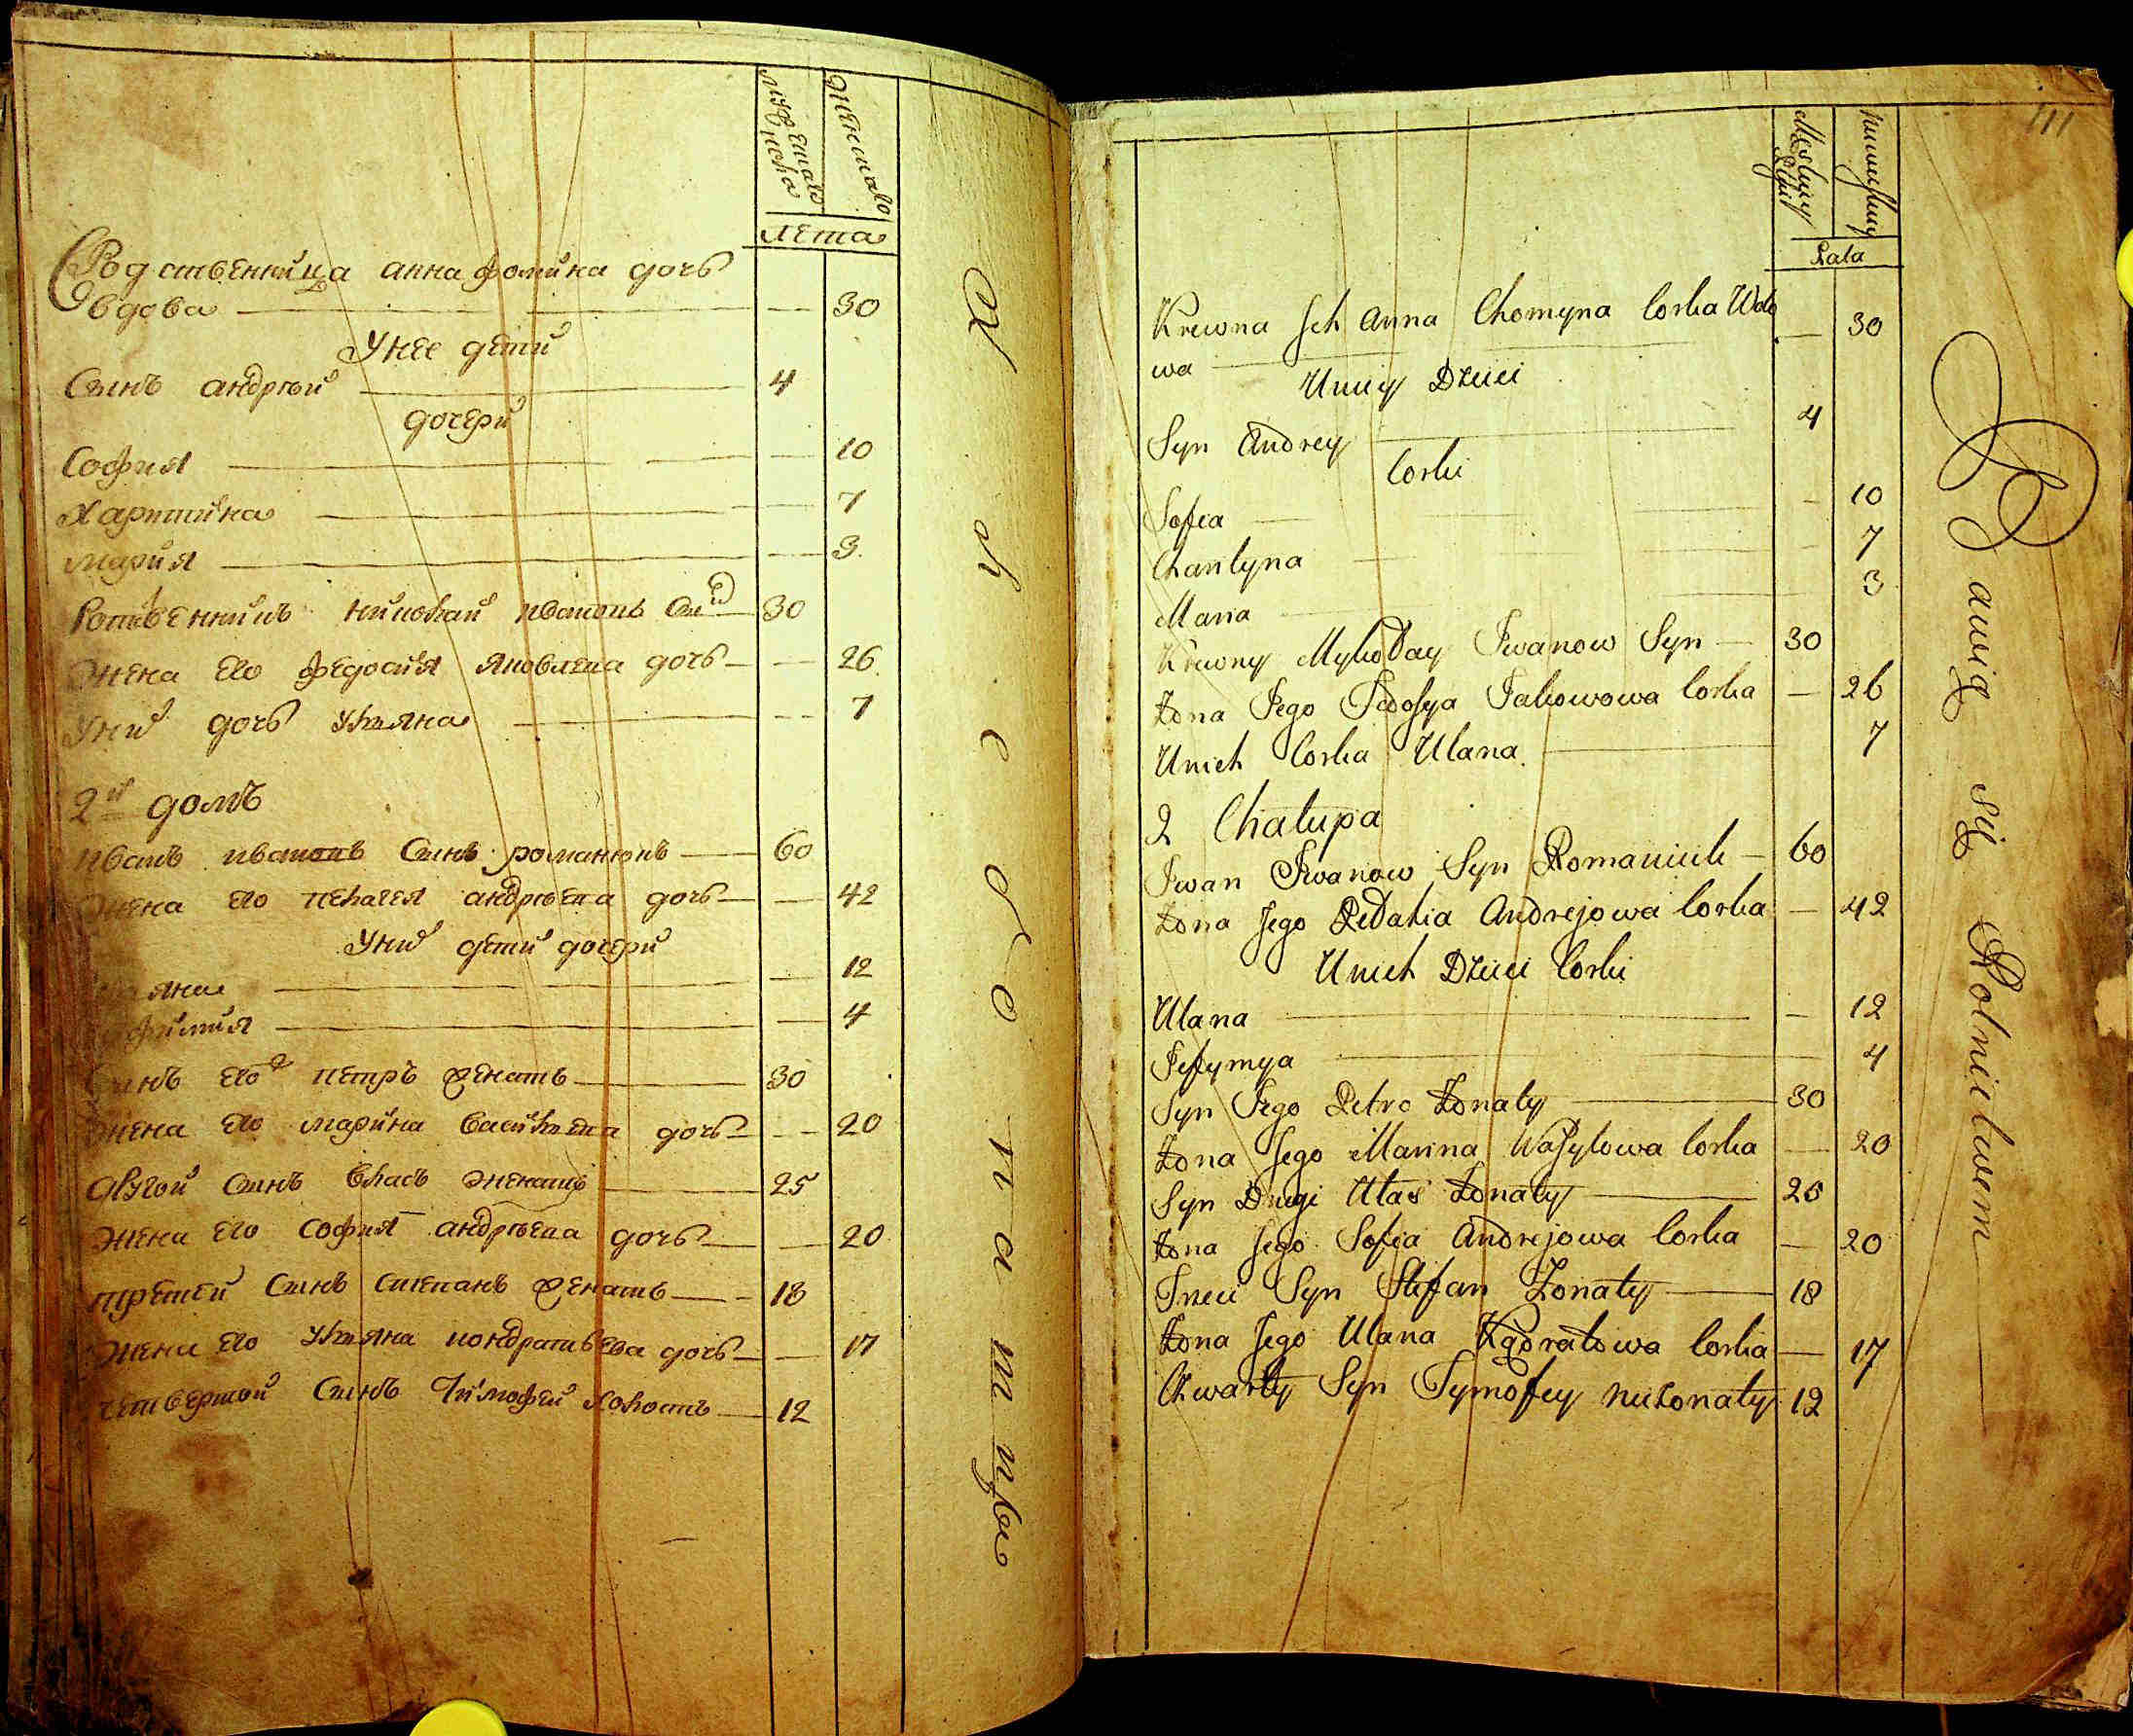 мужескаго пола
женскаго
лета
Родственница анна фомина дочь
вдова — — 30
Унее дети
Сынъ андрѣй — 4
дочери
София — — 10
Харитина — — 7
мария — — 3
Ротвенникъ николай ивановъ сынъ — 30
жена его федосия яковлева дочь — — 26
Уних дочь ульяна — — 7
2й домъ
иванъ ивановъ Сынъ романюкъ — 60
жена его пелагея андрѣева дочь — — 42
Уних дети дочери
— — 12
— — 4
Сынъ его петръ женатъ — 30
жена его марина василева дочь — — 20
другой сынъ власъ женатъ — 25
жена его София андрѣева дочь — — 20
третей Сынъ степанъ женатъ — 18
жена его ульяна кондратьева дочь — — 17
четвертой Сынъ Тимофей холостъ — 12
Хлебопашцы
111
Męskiey Płci
niewieskiey
Lata
Krewna Jch Anna Chomyna Corka Wdo — 30
wa
Uniey Dzieci
Syn Andrey — 4
Corki
Sofia — — 10
Charityna — — 7
Maria — — 3
Krewny Mykołay Iwanow Syn — 30
Żona Iego Fedosya Iakowowa Corka — — 26
Unich Corka Ulana — 7
2 Chałupa
Iwan Iwanow Syn Romaniuk — 60
Żona Jego Pełahia Andrejowa Corka — 42
Unich Dzieci Corki
Ulana — — 12
Iefymya — 4
Syn Iego Petro Żonaty — 30
Żona Jego Marina Wasylowa Corka — 20
Syn Drugi Ułas Żonaty — 25
Żona Jego Sofia Andrejowa Corka — 20
Trzeci Syn Stefan Żonaty — 18
Żona Jego Ulana Kądratowa Corka — 17
Czwarty Syn Tymofey nieżonaty 12
Bawią się Rolnictwem